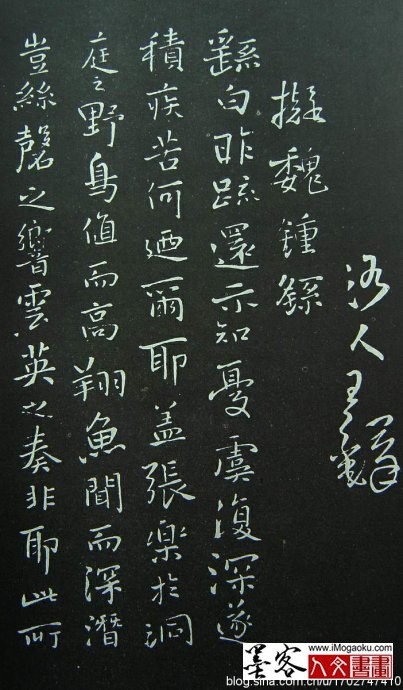 洛人王鐸
擬魏鍾繇
繇白昨疏還示知憂虞復深遂
積疾苦何迺爾耶盖張樂於洞
庭之野鳥值而高翔魚聞而深潛
豈絲磬之響雲英之奏非耶此所
墨客
www.iMogaoku.com
人文書畫
blog.sina.com.cn/u/1702747410